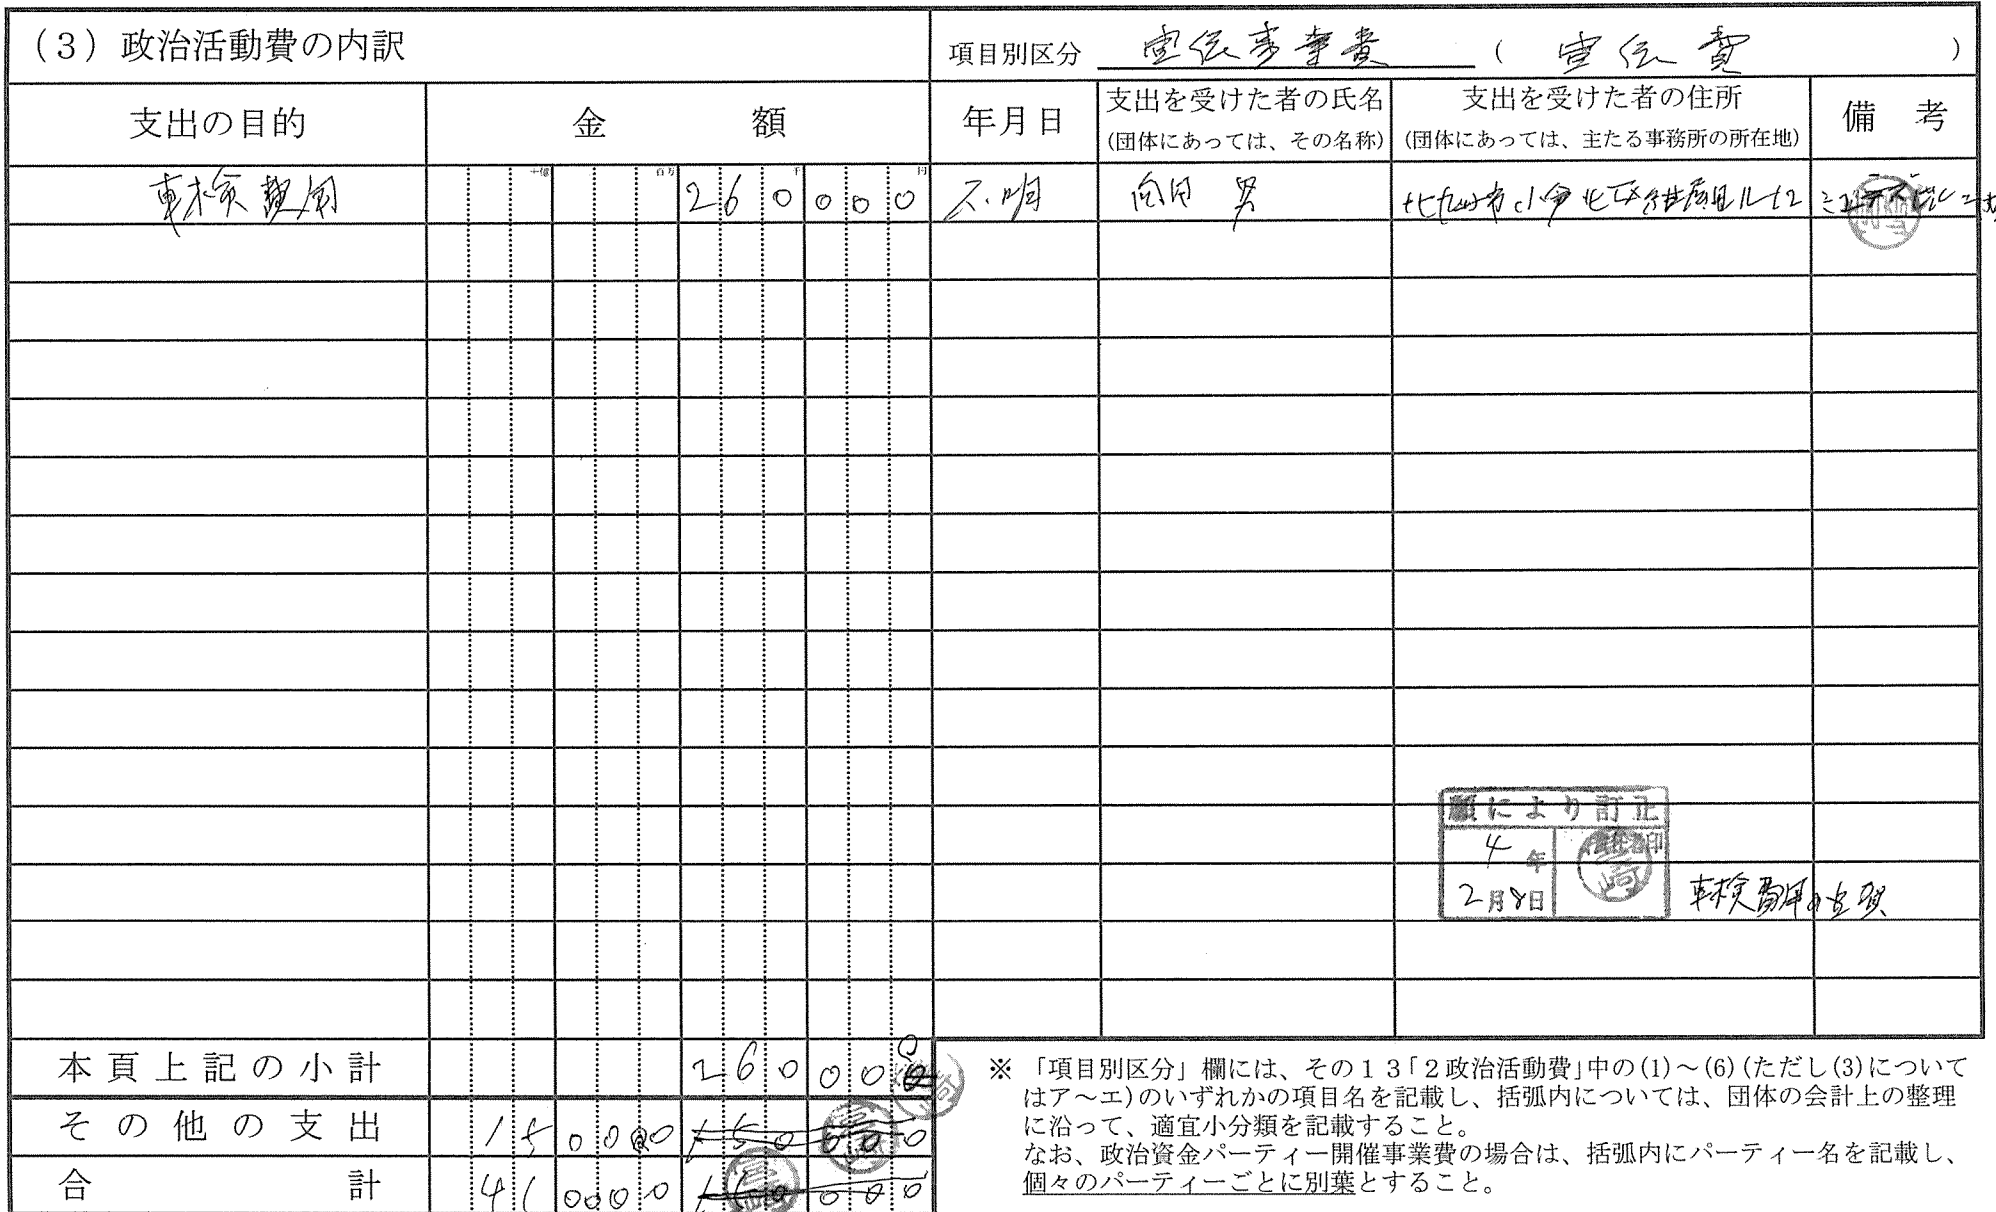 (3) 政治活動費の内訳
項目別区分 宣伝事業費 ( 宣伝費 )
支出の目的 金額 年月日 支出を受けた者の氏名 (団体にあっては、その名称) 支出を受けた者の住所 (団体にあっては、主たる事務所の所在地) 備考
十億 百万 千 円
車検費用 260000 不明 男 北九州市小倉北区
願により訂正
4年
2月8日
車検費用の
本頁上記の小計 260000
その他の支出 150000 150000
合計 410000
※ 「項目別区分」欄には、その13「2政治活動費」中の(1)~(6)(ただし(3)について
はア~エ)のいずれかの項目名を記載し、括弧内については、団体の会計上の整理
に沿って、適宜小分類を記載すること。
なお、政治資金パーティー開催事業費の場合は、括弧内にパーティー名を記載し、
個々のパーティーごとに別葉とすること。